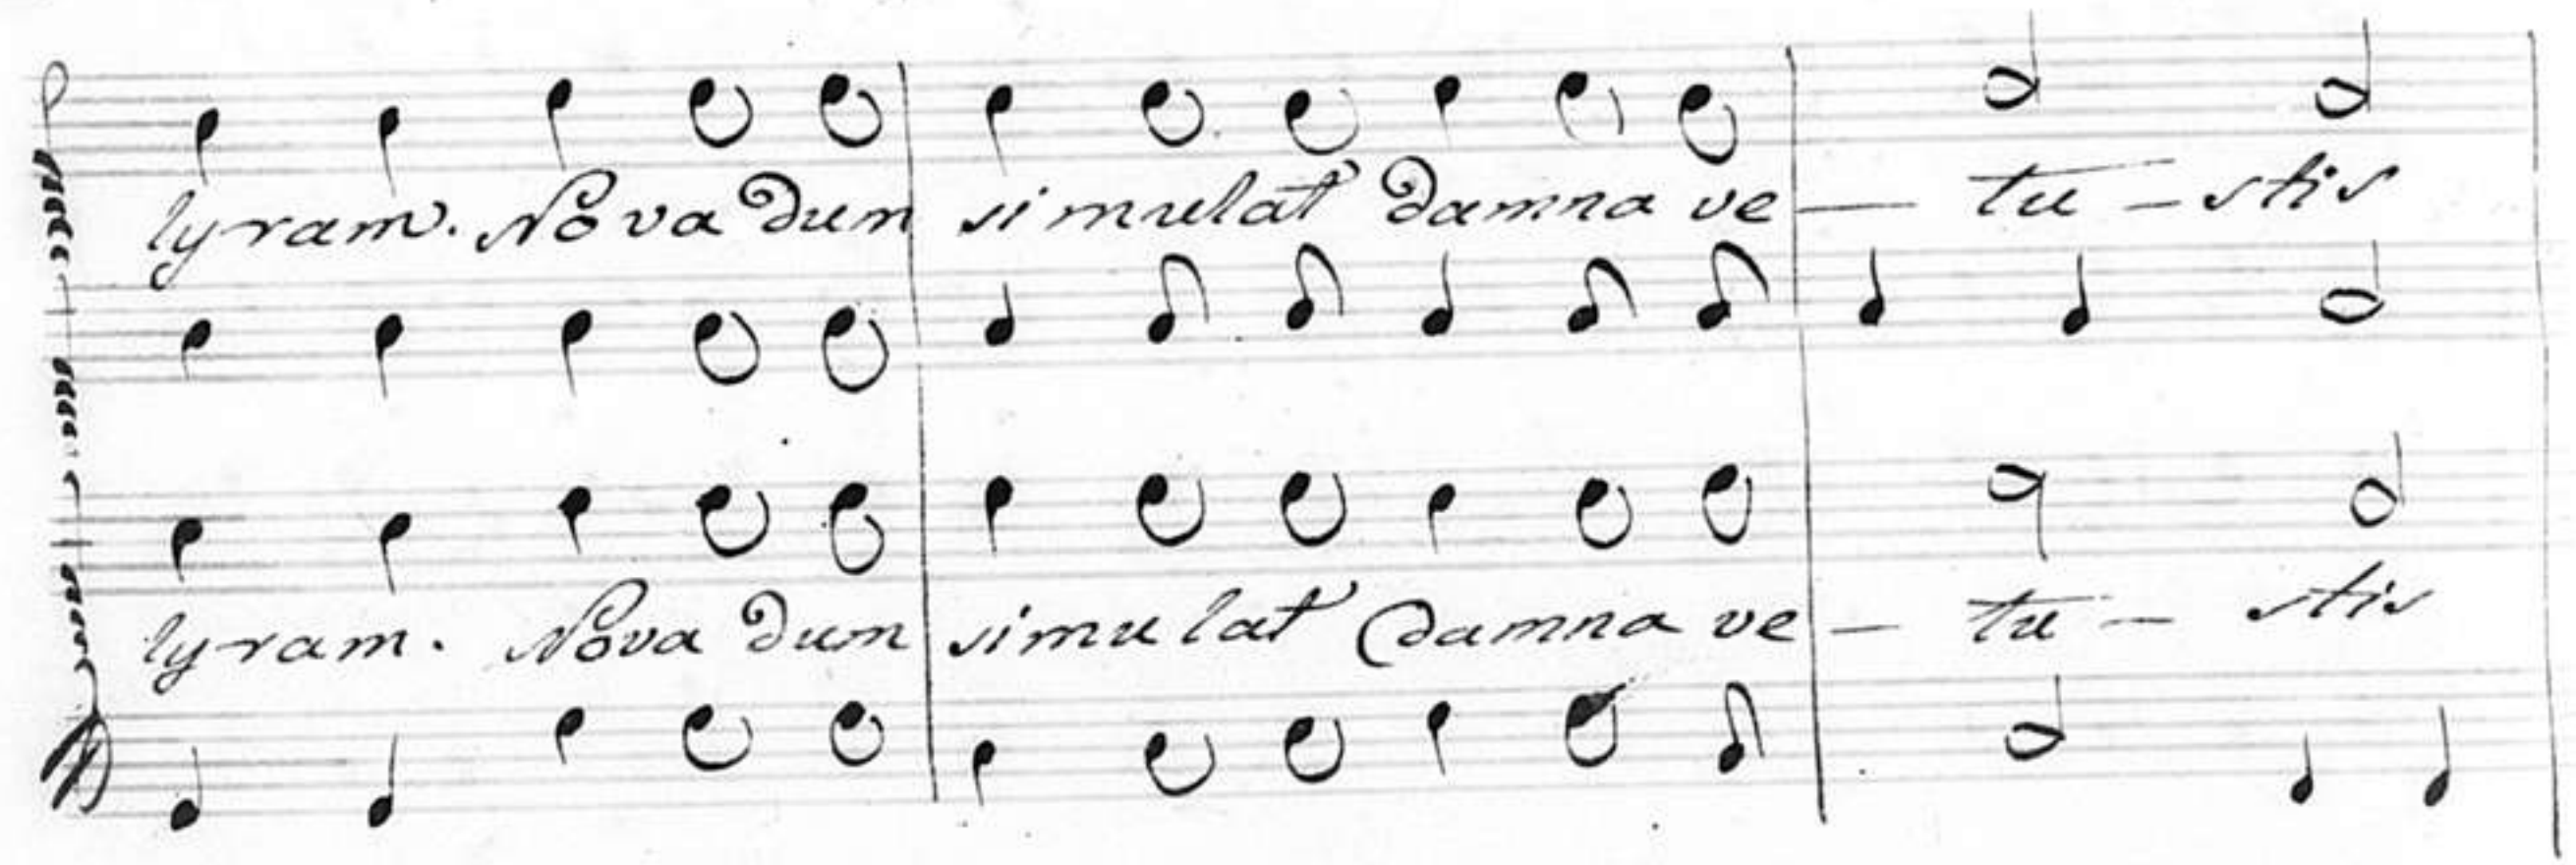 lyram. Nova dum simulat damna ve — tu — stis
lyram. Nova dum simulat damna ve — tu — stis